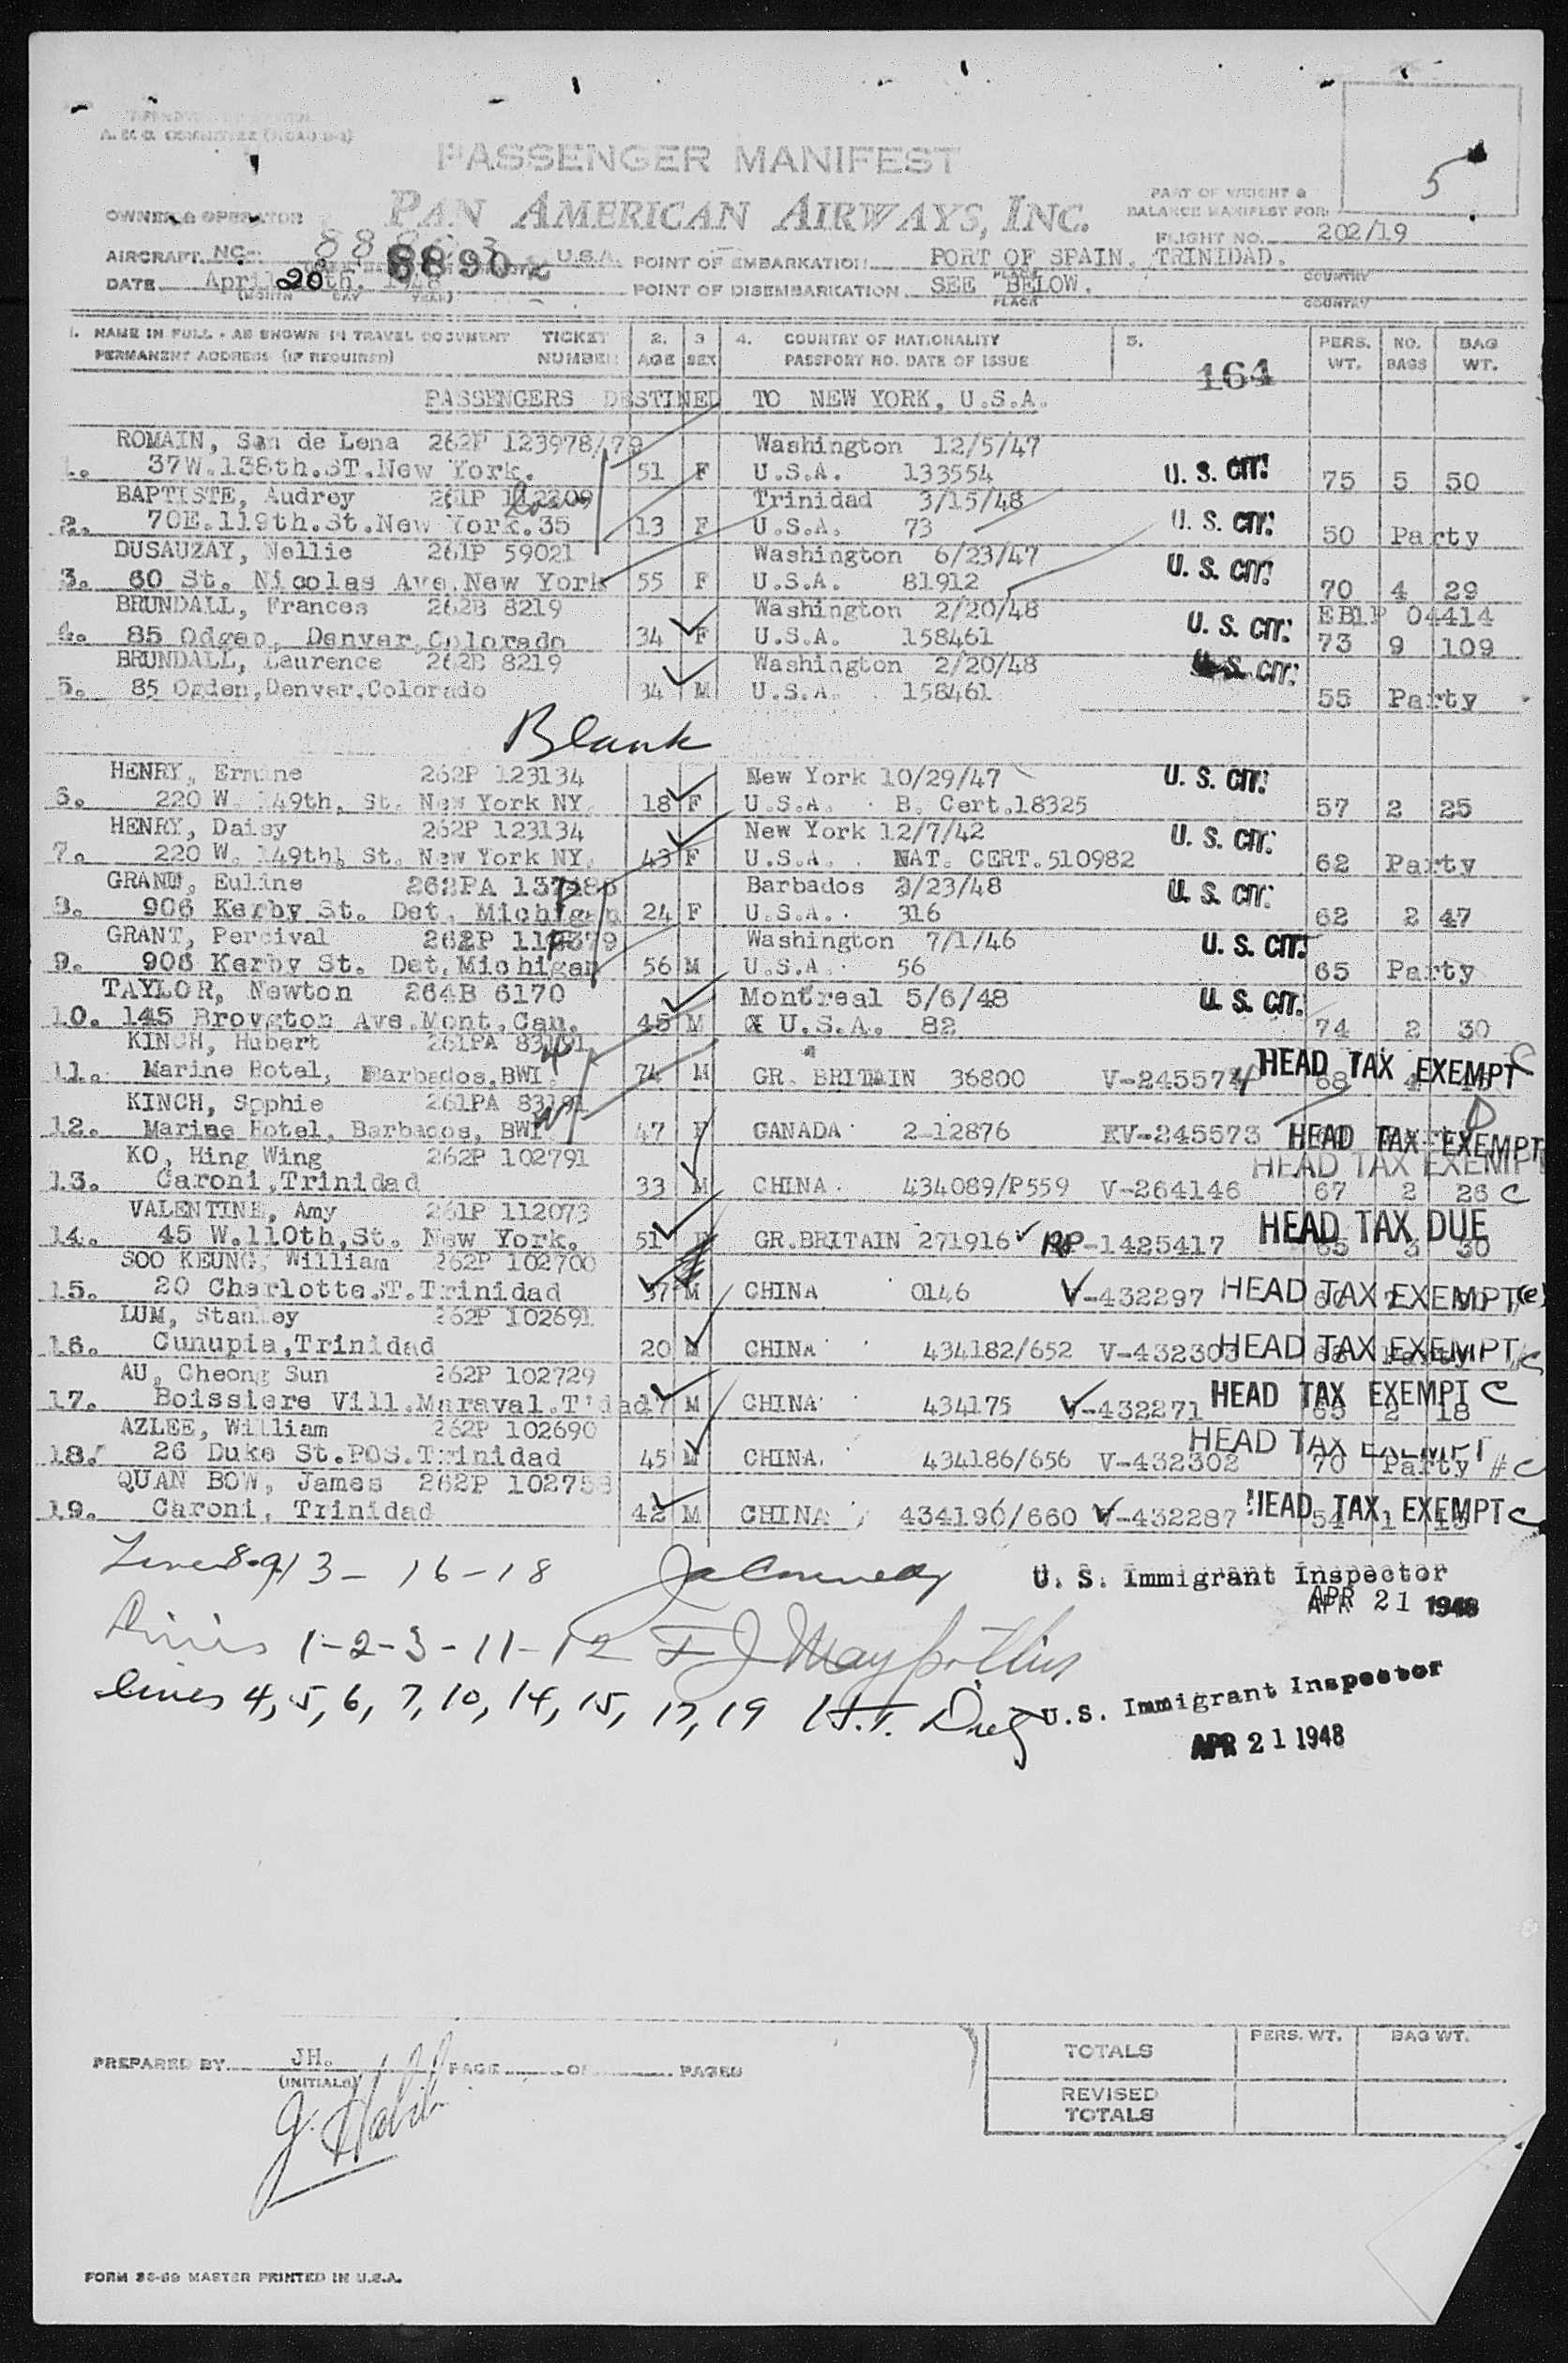 PASSENGER MANIFEST
PAN AMERICAN AIRWAYS, INC.
5
OWNER & OPERATOR
PART OF WEIGHT &
BALANCE MANIFEST FOR:
FLIGHT NO. 202/19
AIRCRAFT NC- U.S.A.
POINT OF EMBARKATION PORT OF SPAIN, TRINIDAD.
PLACE COUNTRY
DATE April 20th. 1948
(MONTH DAY YEAR)
POINT OF DISEMBARKATION SEE BELOW.
PLACE COUNTRY
1. NAME IN FULL - AS SHOWN IN TRAVEL DOCUMENT TICKET 2. 3 4. COUNTRY OF NATIONALITY 5. PERS. NO. BAG
PERMANENT ADDRESS (IF REQUIRED) NUMBER AGE SEX PASSPORT NO. DATE OF ISSUE WT. BAGS WT.
164
PASSENGERS DESTINED TO NEW YORK, U.S.A.
ROMAIN, San de Lena 262P 123978/79 Washington 12/5/47
1. 37W.138th.ST.New York. 51 F U.S.A. 133554 U. S. CIT: 75 5 50
BAPTISTE, Audrey 261P Trinidad 3/15/48
2. 70E.119th.St.New York.35 13 F U.S.A. 73 U. S. CIT: 50 Party
DUSAUZAY, Nellie 261P 59021 Washington 6/23/47
3. 60 St. Nicolas Ave.New York 55 F U.S.A. 81912 U. S. CIT: 70 4 29
BRUNDALL, Frances 262B 8219 Washington 2/20/48 EB1P 04414
4. 85 Odgen, Denver,Colorado 34 F U.S.A. 158461 U. S. CIT: 73 9 109
BRUNDALL, Laurence 262B 8219 Washington 2/20/48
5. 85 Ogden,Denver,Colorado 34 M U.S.A. 158461 U. S. CIT: 55 Party
Blank
HENRY, Ermine 262P 123134 New York 10/29/47
6. 220 W. 149th, St. New York NY. 18 F U.S.A. B. Cert.18325 U. S. CIT: 57 2 25
HENRY, Daisy 262P 123134 New York 12/7/42
7. 220 W. 149th, St. New York NY. 43 F U.S.A. NAT. CERT.510982 U. S. CIT: 62 Party
Euline 262PA Barbados 3/23/48
8. 906 Kerby St. Det. Michigan 24 F U.S.A. 316 U. S. CIT: 62 2 47
GRANT, Percival 262P Washington 7/1/46
9. 906 Kerby St. Det.Michigan 56 M U.S.A. 56 U. S. CIT: 65 Party
TAYLOR, Newton 264B 6170 Montreal 5/6/48
10. 145 Brovgton Ave.Mont.Can. 45 M U.S.A. 82 U. S. CIT: 74 2 30
KINCH, Hubert 261PA 83191
11. Marine Hotel, Barbados,BWI. 74 M GR. BRITAIN 36800 V-245574 HEAD TAX EXEMPT C 68 4
KINCH, Sophie 261PA 83191
12. Marine Hotel, Barbados, BWI 47 F CANADA 2-12876 V-245573 HEAD TAX EXEMPT
KO, Hing Wing 262P 102791 HEAD TAX EXEMPT
13. Caroni,Trinidad 33 M CHINA 434089/P559 V-264146 67 2 26 C
VALENTINE, Amy 261P 112073
14. 45 W.110th,St. New York. 51 F GR.BRITAIN 271916 RP-1425417 HEAD TAX DUE 65 3 30
SOO KEUNG, William 262P 102700
15. 20 Charlotte.ST.Trinidad 37 M CHINA 0146 V-432297 HEAD TAX EXEMPT
LUM, Stanley 262P 102691
16. Cunupia,Trinidad 20 M CHINA 434182/652 V-432303 HEAD TAX EXEMPT Party
AU, Cheong Sun 262P 102729
17. Boissiere Vill.Maraval.T'dad 47 M CHINA 434175 V-432271 HEAD TAX EXEMPT C 65 2 18
AZLEE, William 262P 102690 HEAD TAX EXEMPT
18. 26 Duke St.POS.Trinidad 45 M CHINA. 434186/656 V-432302 70 Party # C
QUAN BOW, James 262P 102758
19. Caroni, Trinidad 42 M CHINA 434190/660 V-432287 HEAD TAX EXEMPT C 54 1
Lines 8-9-13-16-18 U. S. Immigrant Inspector
APR 21 1948
Lines 1-2-3-11-12
lines 4, 5, 6, 7, 10, 14, 15, 17, 19 U.S. Immigrant Inspector
APR 21 1948
TOTALS PERS. WT. BAG WT.
PREPARED BY JH. PAGE OF PAGES
(INITIALS)
REVISED
TOTALS
J. Habib
FORM 36-69 MASTER PRINTED IN U.S.A.